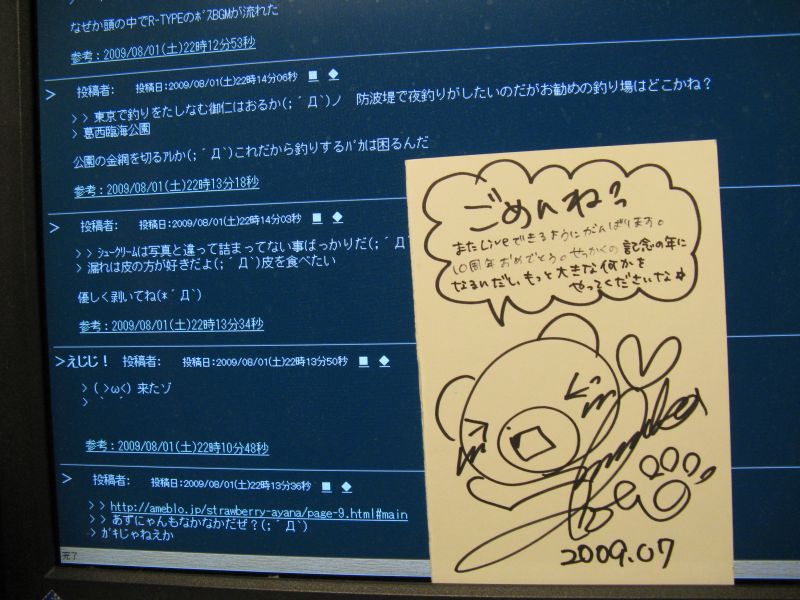 なぜか頭の中でR-TYPEのﾎﾞｽBGMが流れた
参考：2009/08/01(土)22時12分53秒
> 投稿者: 投稿日:2009/08/01(土)22時14分06秒 ■ ◆
> > 東京で釣りをたしなむ御仁はおるか(;´Д`)ノ 防波堤で夜釣りがしたいのだがお勧めの釣り場はどこかね？
> 葛西臨海公園
公園の金網を切るｱﾚか(;´Д`)これだから釣りするﾊﾞｶは困るんだ
参考：2009/08/01(土)22時13分18秒
> 投稿者: 投稿日:2009/08/01(土)22時14分03秒 ■ ◆
> > ｼｭｰｸﾘｰﾑは写真と違って詰まってない事ばっかりだ(;´Д`
> 漏れは皮の方が好きだよ(;´Д`)皮を食べたい
優しく剥いてね(*´Д`)
参考：2009/08/01(土)22時13分34秒
>えじじ！ 投稿者: 投稿日:2009/08/01(土)22時13分50秒 ■ ◆
> ( >ω<) 来たゾ
> ｀ ´
参考：2009/08/01(土)22時10分48秒
> 投稿者: 投稿日:2009/08/01(土)22時13分36秒 ■ ◆
> > http://ameblo.jp/strawberry-ayana/page-9.html#main
> > あずにゃんもなかなかだぜ？(;´Д`)
> ｶﾞｷじゃねえか
完了
ごめんねっ
またLiveできるようにがんばります。
10周年おめでとう。せっかくの記念の年に
なるんだし、もっと大きな何かを
やってくださいな☆
2009.07